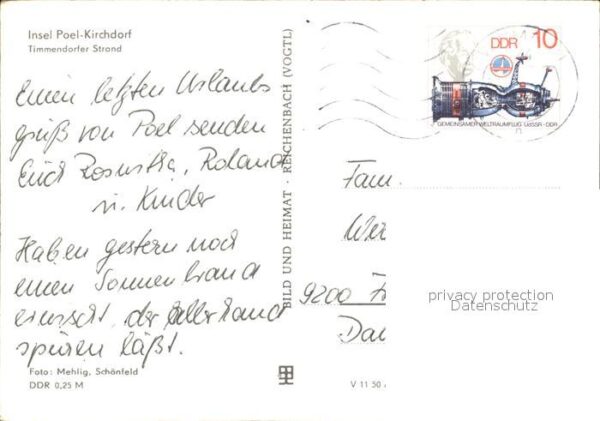 Insel Poel-Kirchdorf
Timmendorfer Strand
Einen letzten Urlaubs
gruß von Poel senden
Euch Roswitha, Roland
u. Kinder
Haben gestern noch
einen Sonnenbrand
erwischt, der allerhand
spüren läßt.
Foto: Mehlig, Schönfeld
DDR 0,25 M
BILD UND HEIMAT · REICHENBACH (VOGTL)
V 11 50
DDR 10
GEMEINSAMER WELTRAUMFLUG UdSSR-DDR
Fam.
9200
privacy protection
Datenschutz